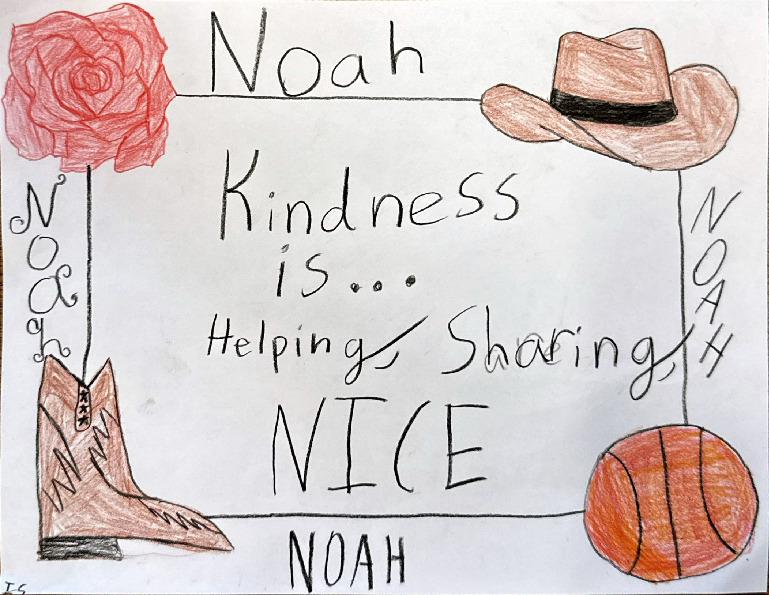 Noah
Noah
Kindness
is...
Helping, Sharing,
NICE
NOAH
NOAH
IS